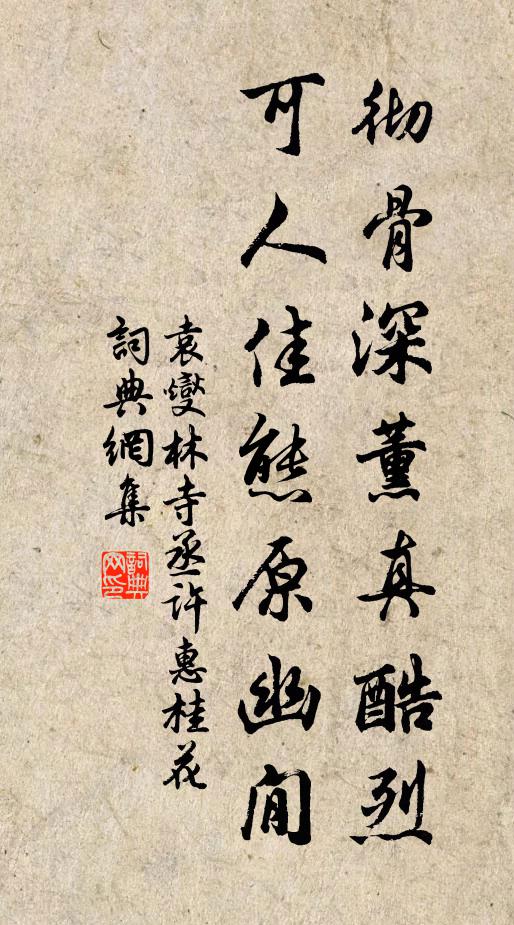 彻骨深薰真酷烈
可人佳態原幽閒
袁燮林寺丞許惠桂花
詞典網集
詞典網印